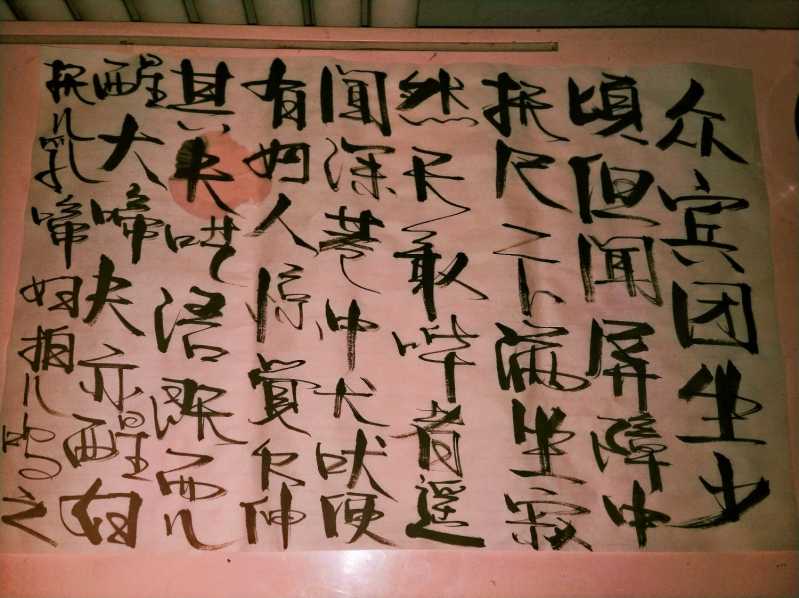 众宾团坐少
頃但聞屏障中
抚尺一下满坐寂
然无敢哗者遥
聞深巷中犬吠便
有妇人惊覺欠伸
其夫呓语既而儿
醒大啼夫亦醒妇
抚儿乳啼妇拍儿呜之